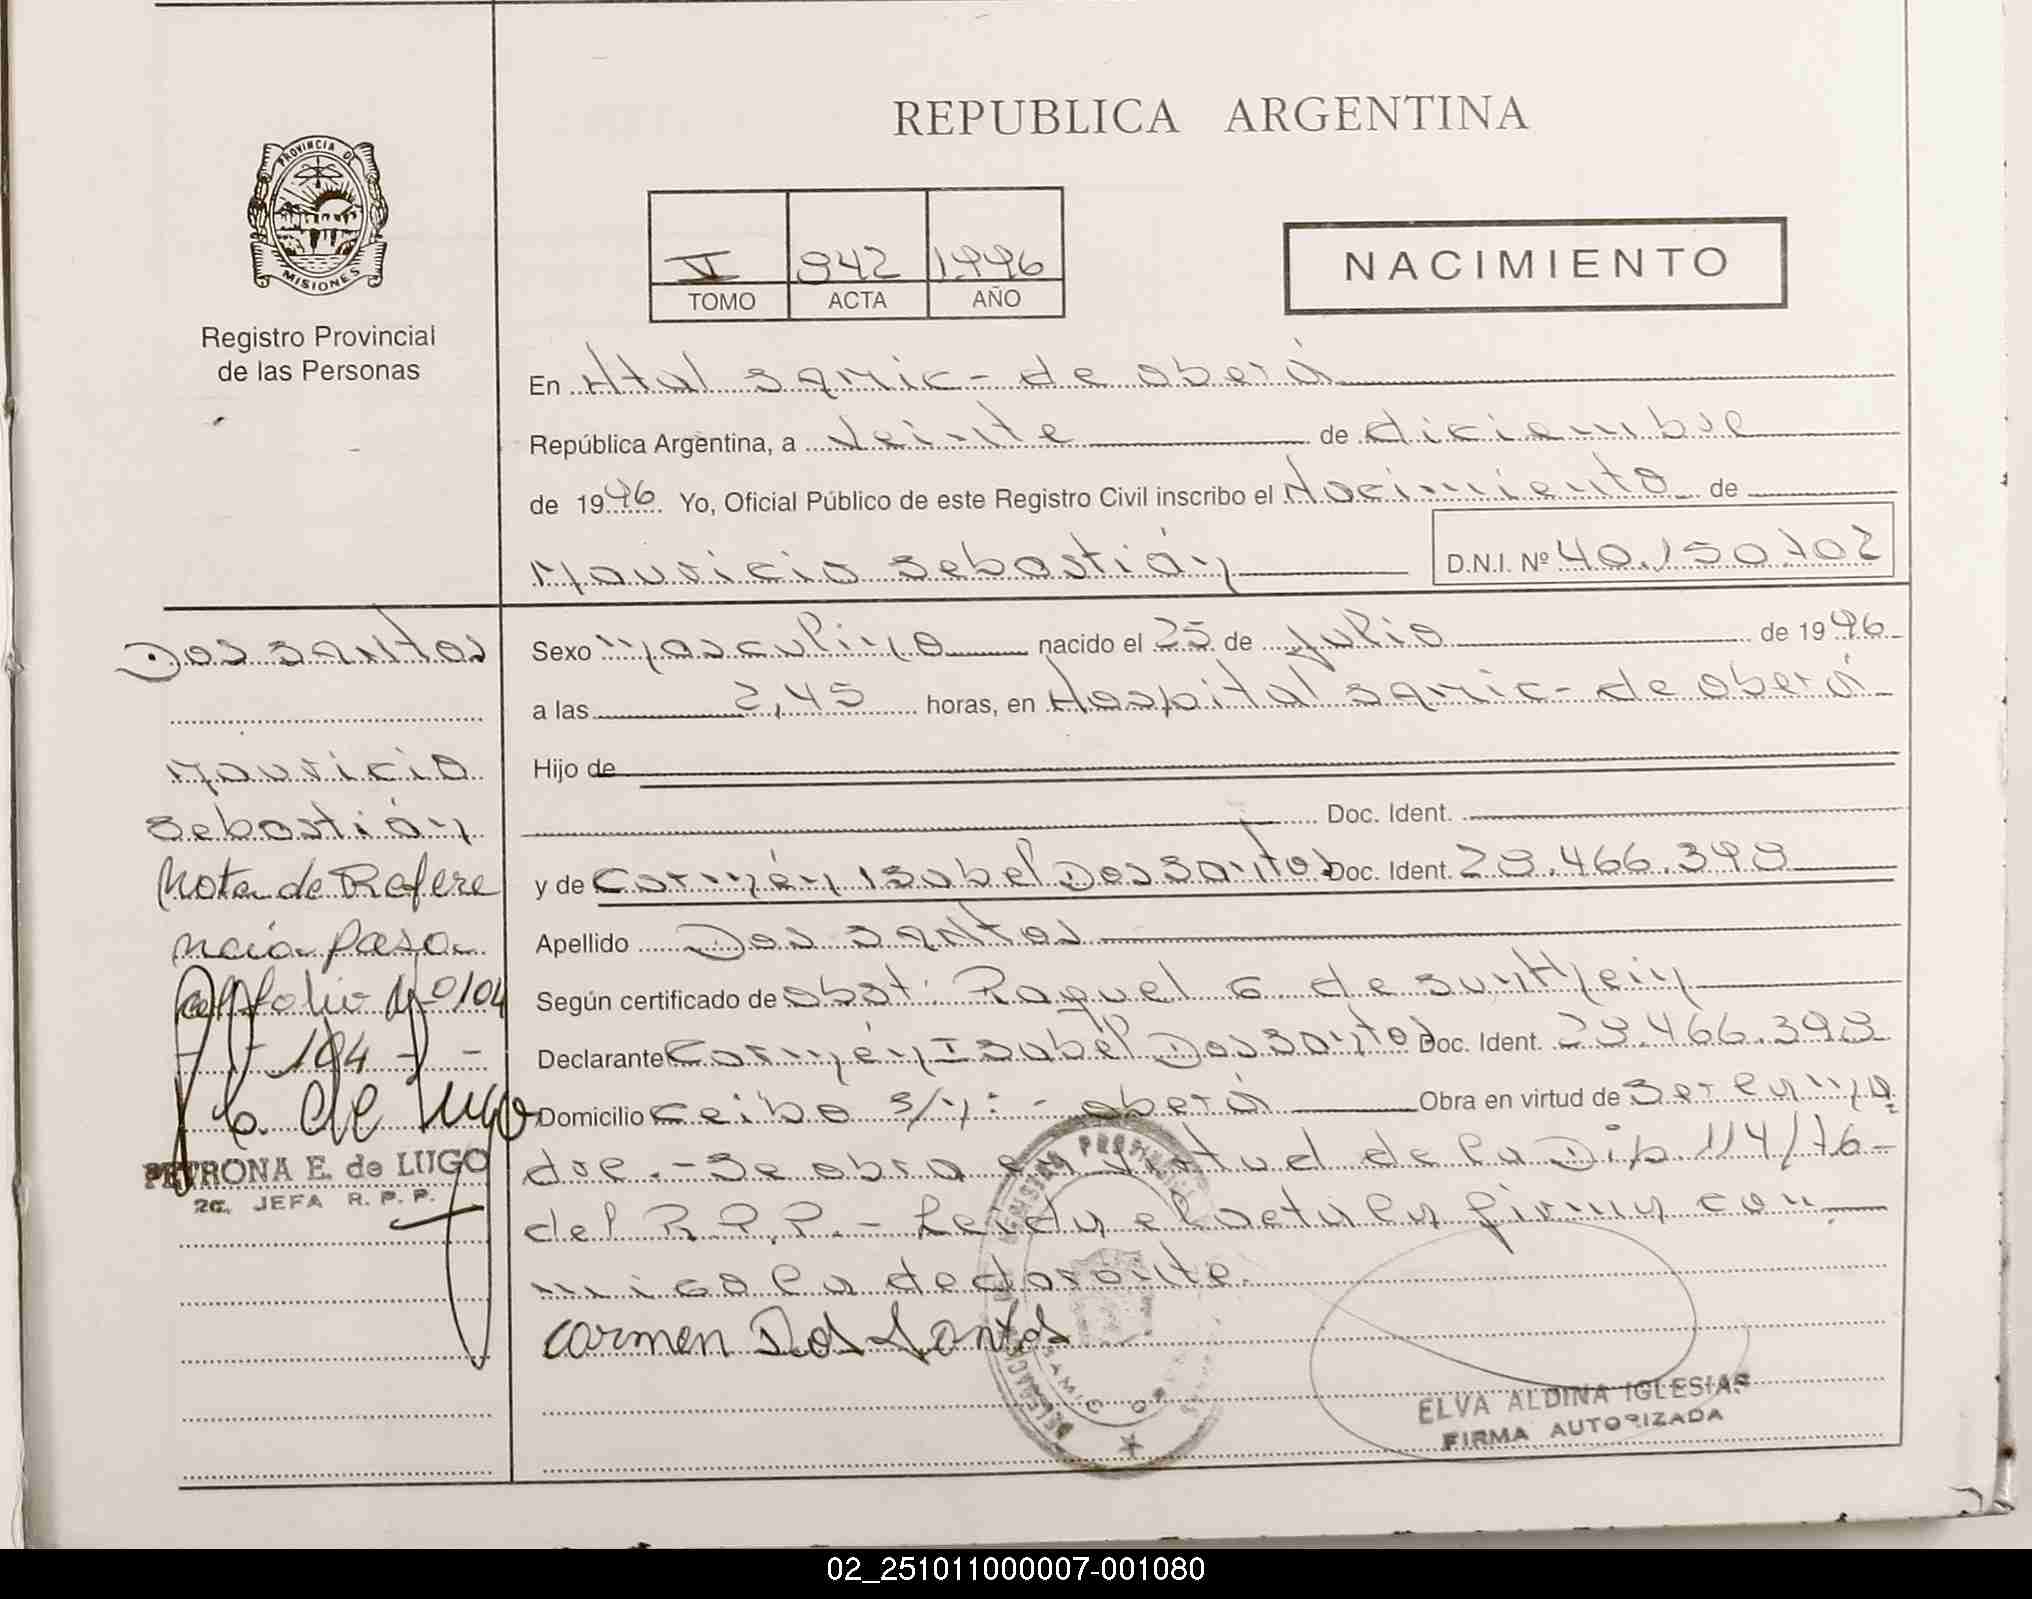 REPUBLICA ARGENTINA
PROVINCIA DE
MISIONES
Registro Provincial
de las Personas
V 942 1996
TOMO ACTA AÑO
NACIMIENTO
En Htal Samic - de oberá
República Argentina, a veinte de diciembre
de 1996 Yo, Oficial Público de este Registro Civil inscribo el Nacimiento de
Mauricio Sebastián D.N.I. Nº 40.150.702
Dos Santos
Mauricio
Sebastián
Nota de Refere
ncia pasa
al folio Nº 104
- - 104 - -
de Lugo
PETRONA E. de LUGO
2a. JEFA R. P. P.
Sexo masculino nacido el 25 de Julio de 1996
a las 2,45 horas, en Hospital Samic - de oberá
Hijo de
Doc. Ident.
y de Carmen Isabel Dos Santos Doc. Ident. 28.466.398
Apellido Dos Santos
Según certificado de obst. Raquel G. de
Declarante Carmen Isabel Dos Santos Doc. Ident. 28.466.398
Domicilio Ceibo s/n: - oberá Obra en virtud de ser la ma
dre. - Se obra en virtud de la Dip 114/76 -
del R.P.P. - Leida el acta la firma con
migo la declarante.
Carmen Dos Santos
ELVA ALDINA IGLESIAS
FIRMA AUTORIZADA
02_251011000007-001080